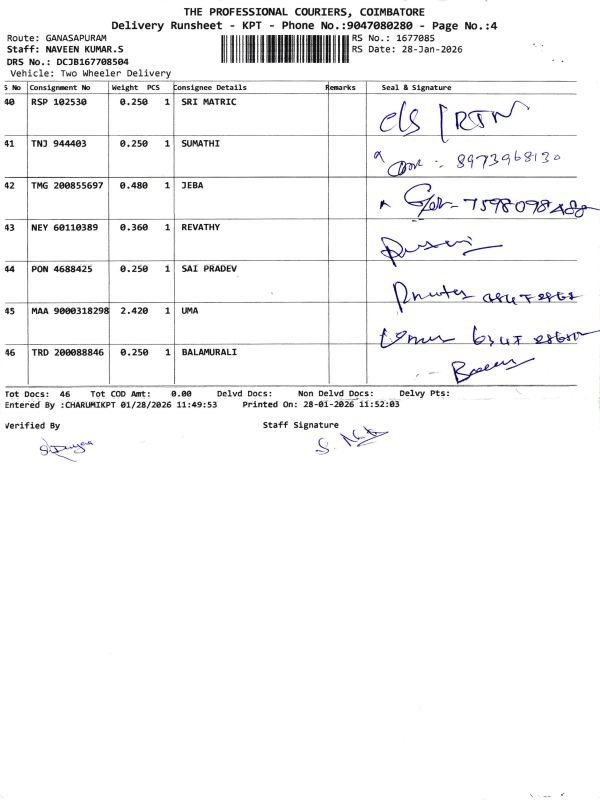 THE PROFESSIONAL COURIERS, COIMBATORE
Delivery Runsheet - KPT - Phone No.:9047080280 - Page No.:4
Route: GANASAPURAM RS No.: 1677085
Staff: NAVEEN KUMAR.S RS Date: 28-Jan-2026
DRS No.: DCJB167708504
Vehicle: Two Wheeler Delivery
S No Consignment No Weight PCS Consignee Details Remarks Seal & Signature
40 RSP 102530 0.250 1 SRI MATRIC
41 TNJ 944403 0.250 1 SUMATHI 8973968130
42 TMG 200855697 0.480 1 JEBA 7598098488
43 NEY 60110389 0.360 1 REVATHY
44 PON 4688425 0.250 1 SAI PRADEV
45 MAA 9000318298 2.420 1 UMA
46 TRD 200088846 0.250 1 BALAMURALI
Tot Docs: 46 Tot COD Amt: 0.00 Delvd Docs: Non Delvd Docs: Delvy Pts:
Entered By :CHARUMIKPT 01/28/2026 11:49:53 Printed On: 28-01-2026 11:52:03
Verified By Staff Signature